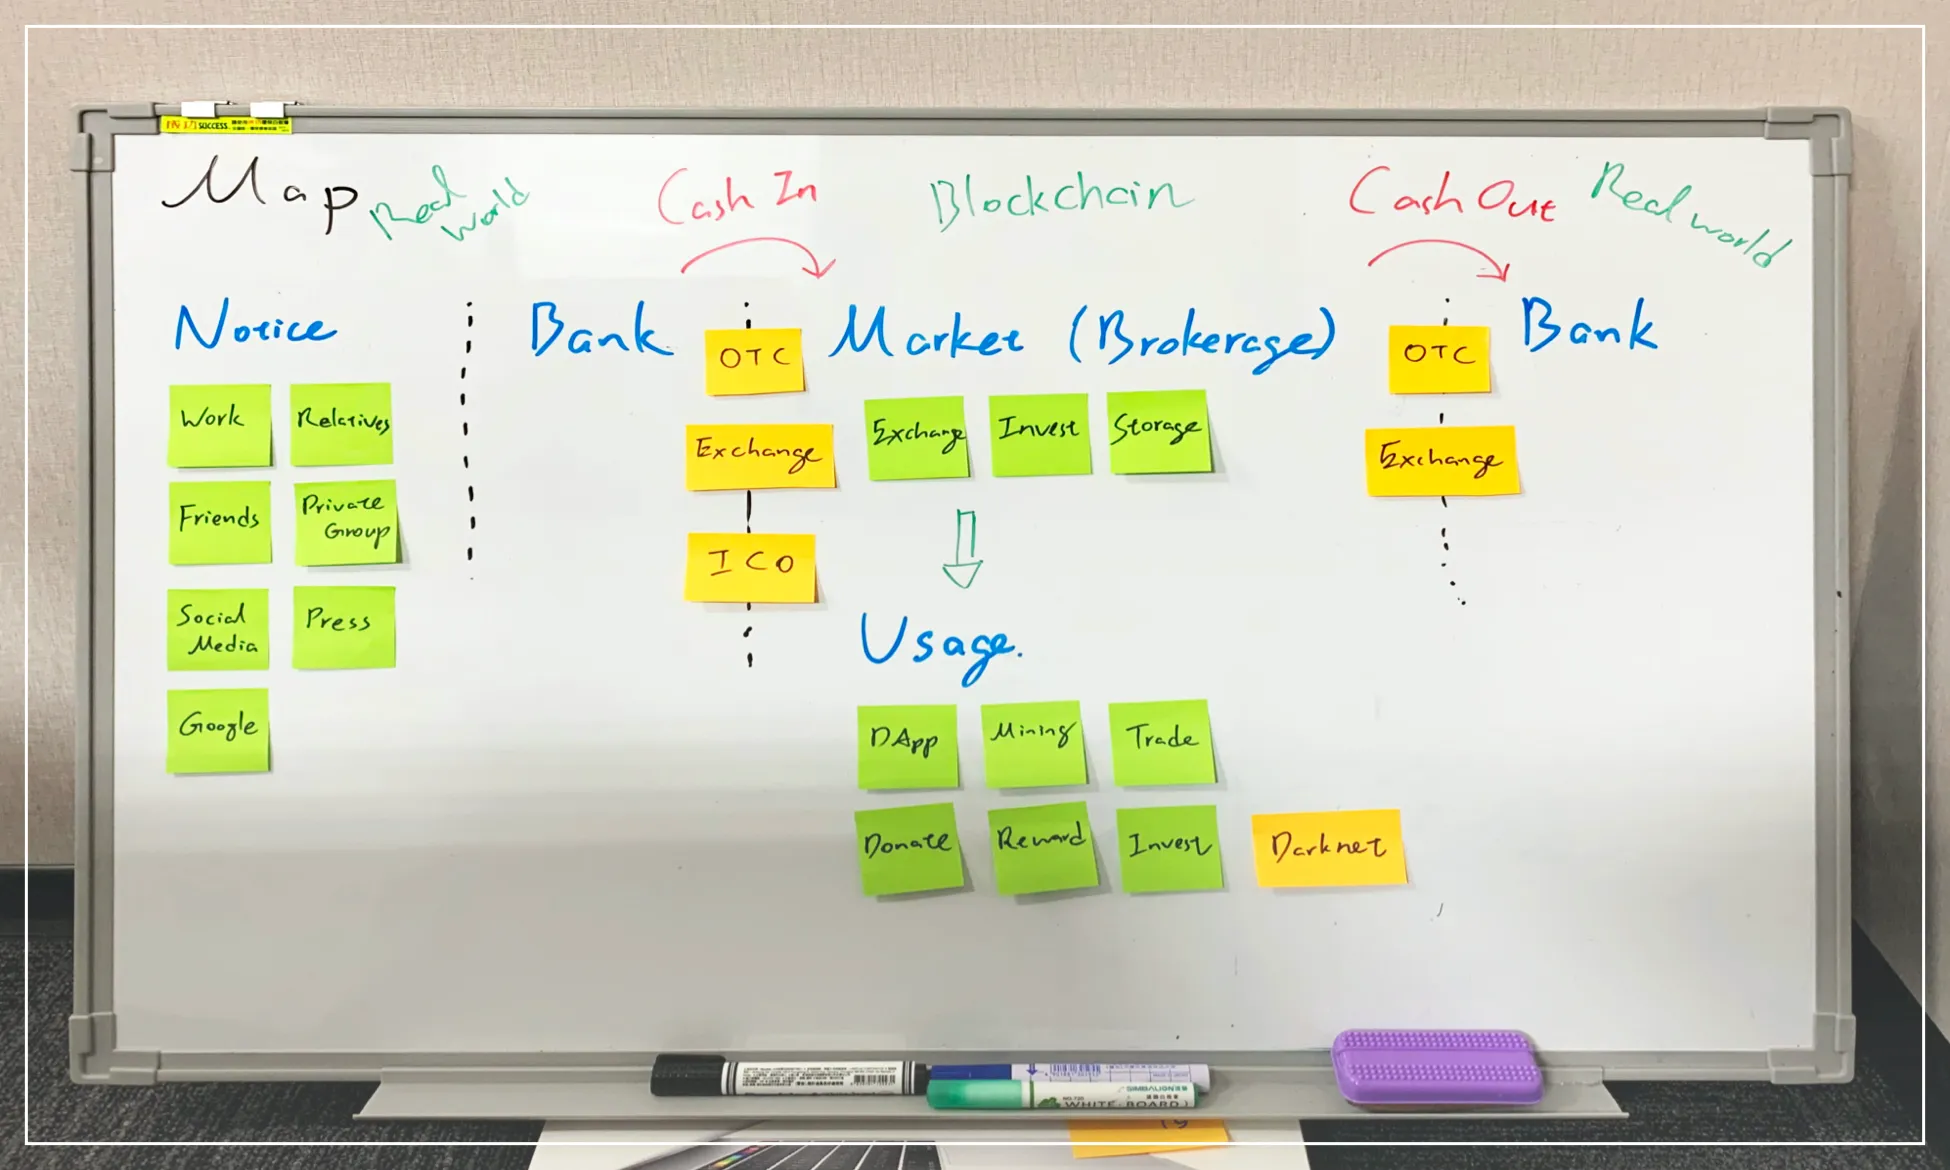 SUCCESS
Map
Real
world
Cash In
Blockchain
Cash Out
Real world
Notice
Bank
OTC
Market (Brokerage)
OTC
Bank
Work
Relatives
Exchange
Exchange
Invest
Storage
Exchange
Friends
Private
Group
ICO
Social
Media
Press
Usage.
Google
DApp
Mining
Trade
Donate
Reward
Invest
Darknet
SIMBALION
WHITE-BOARD